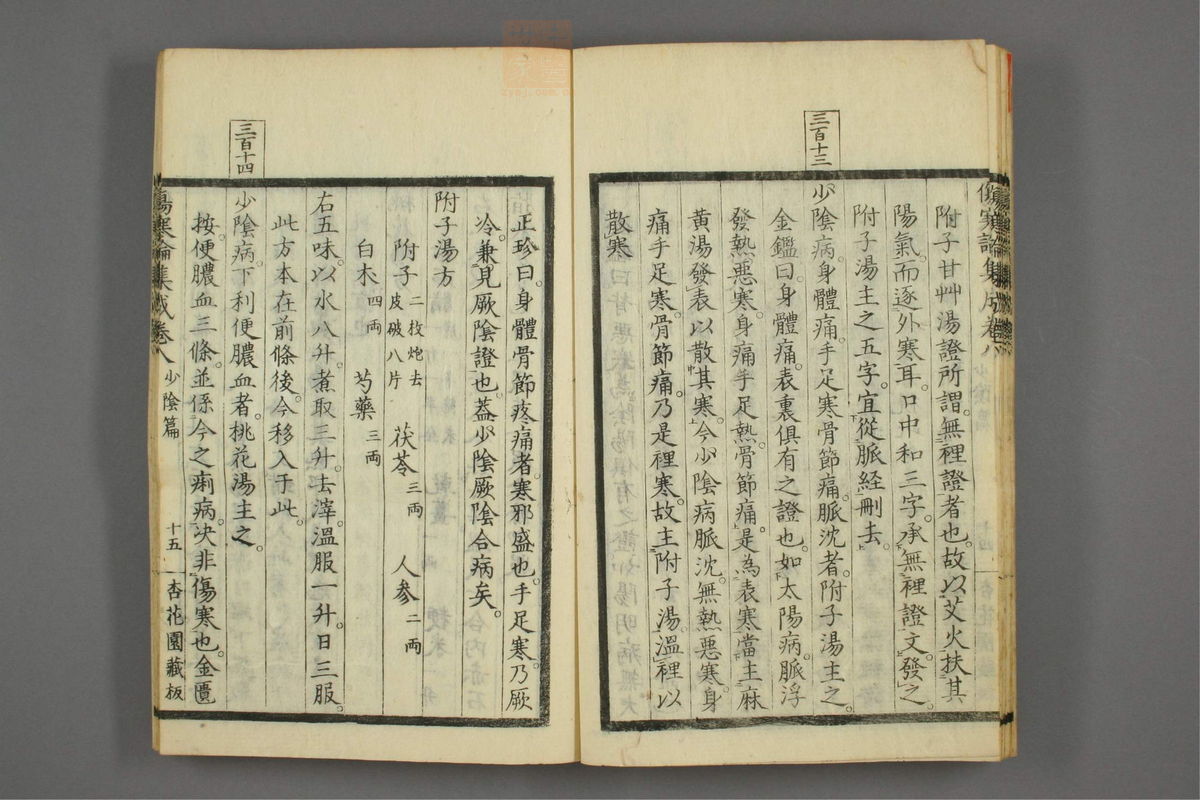 三百十三
傷寒論集成卷八
附子甘艸湯證所謂無裡證者也。故以艾火扶其
陽氣。而逐外寒耳。口中和三字。承無裡證文發之
附子湯主之五字。宜從脈経刪去。
少陰病。身體痛。手足寒。骨節痛。脈沈者。附子湯主之。
金鑑曰。身體痛。表裏俱有之證也。如太陽病。脈浮
發熱。惡寒。身痛。手足熱。骨節痛。是為表寒。當主麻
黃湯。發表以散其寒。今少陰病。脈沈。無熱惡寒。身
痛。手足寒。骨節痛。乃是裡寒。故主附子湯。溫裡以
散寒
三百十四
正珍曰。身體骨節疼痛者。寒邪盛也。手足寒。乃厥
冷。兼見厥陰證也。蓋少陰厥陰合病矣。
附子湯方
附子二枚炮去皮破八片 茯苓三両 人參二両
白术四両 芍藥三両
右五味。以水八升。煮取三升。去滓。溫服一升。日三服。
此方本在前條後。今移入于此。
少陰病。下利便膿血者。桃花湯主之。
按便膿血三條。並係今之痢病。决非傷寒也。金匱
傷寒論集成卷八 少陰篇 十五 杏花園藏板